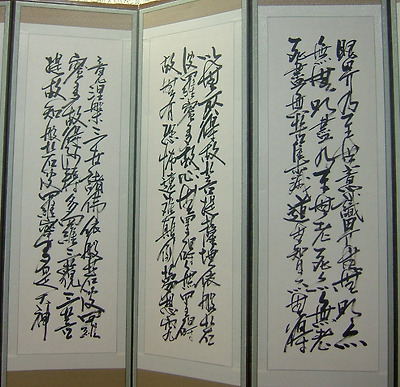 眼界乃至無意識界無無明亦
無無明盡乃至無老死亦無老
死盡無苦集滅道無智亦無得
以無所得故菩提薩埵依般若
波羅蜜多故心無罣礙無罣礙
故無有恐怖遠離顛倒夢想究
竟涅槃三世諸佛依般若波羅
蜜多故得阿耨多羅三藐三菩
提故知般若波羅蜜多是大神